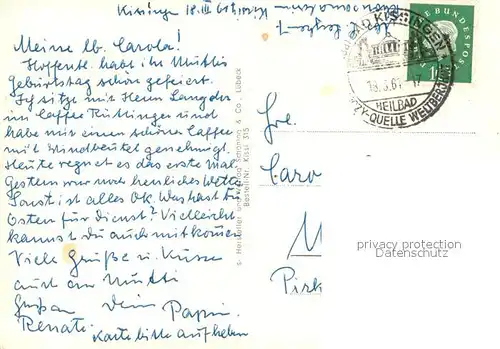 Kissingen 18.III 61
Meine lb. Carola!
Hoffentl. habt ihr Muttis
Geburtstag schön gefeiert.
Ich sitze mit Herrn Langder
im Caffee und
habe mir einen schönen Caffee
mit Windbeutel genehmigt.
Heute regnet es das erste Mal.
Gestern war noch herrliches Wetter
Sonst ist alles Ok. Was hast Du
Ostern für Dienst? Vielleicht
kannst Du auch mitkommen
Viele Grüße u. Küsse
auch an Mutti
Dein Papi.
Renate.
Karte bitte aufheben
Schöning & Co., Lübeck
Bestell-Nr. Kissi 315
BAD KISSINGEN
18.3.61 17
HEILBAD
QUELLE WELTBERÜHMT
DEUTSCHE BUNDESPOST
10
Frl.
Caro
M
Pirk
privacy protection